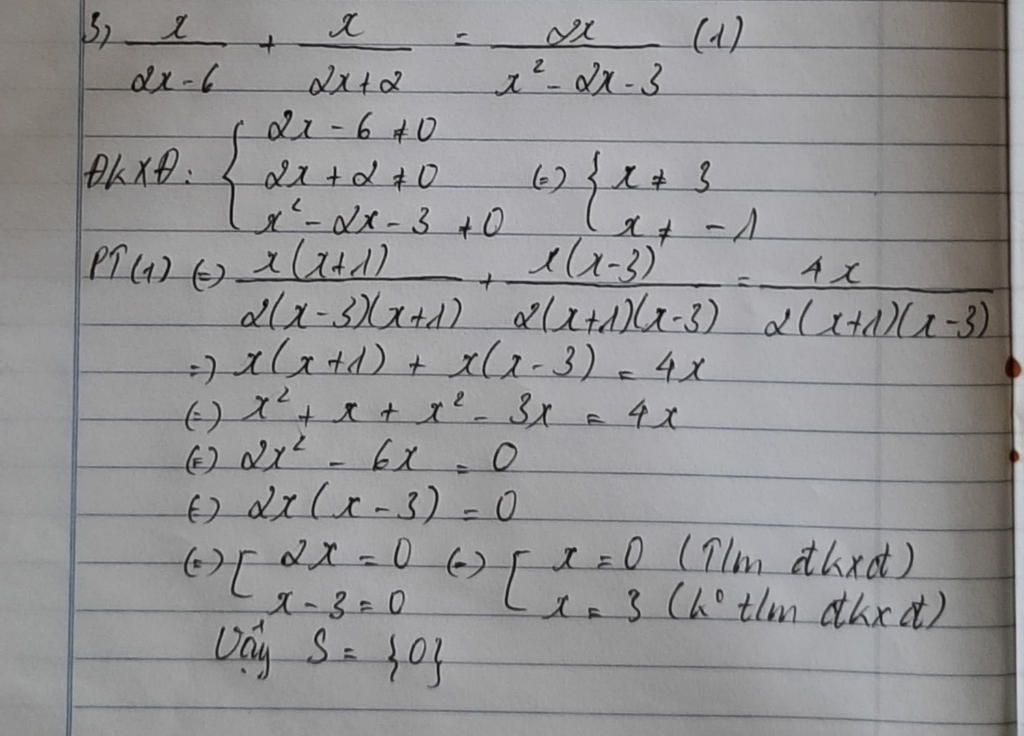 3) x/(2x-6) + x/(2x+2) = 2x/(x²-2x-3) (1)
ĐKXĐ: { 2x-6≠0
2x+2≠0 (=) { x≠3
x²-2x-3≠0 x≠-1
PT(1) (=) x(x+1)/(2(x-3)(x+1)) + x(x-3)/(2(x+1)(x-3)) = 4x/(2(x+1)(x-3))
=) x(x+1) + x(x-3) = 4x
(=) x² + x + x² - 3x = 4x
(=) 2x² - 6x = 0
(=) 2x(x-3) = 0
(=) [ 2x = 0 (=) [ x = 0 (T/m đkxđ)
x-3 = 0 x = 3 (k° t/m đkxđ)
Vậy S = {0}